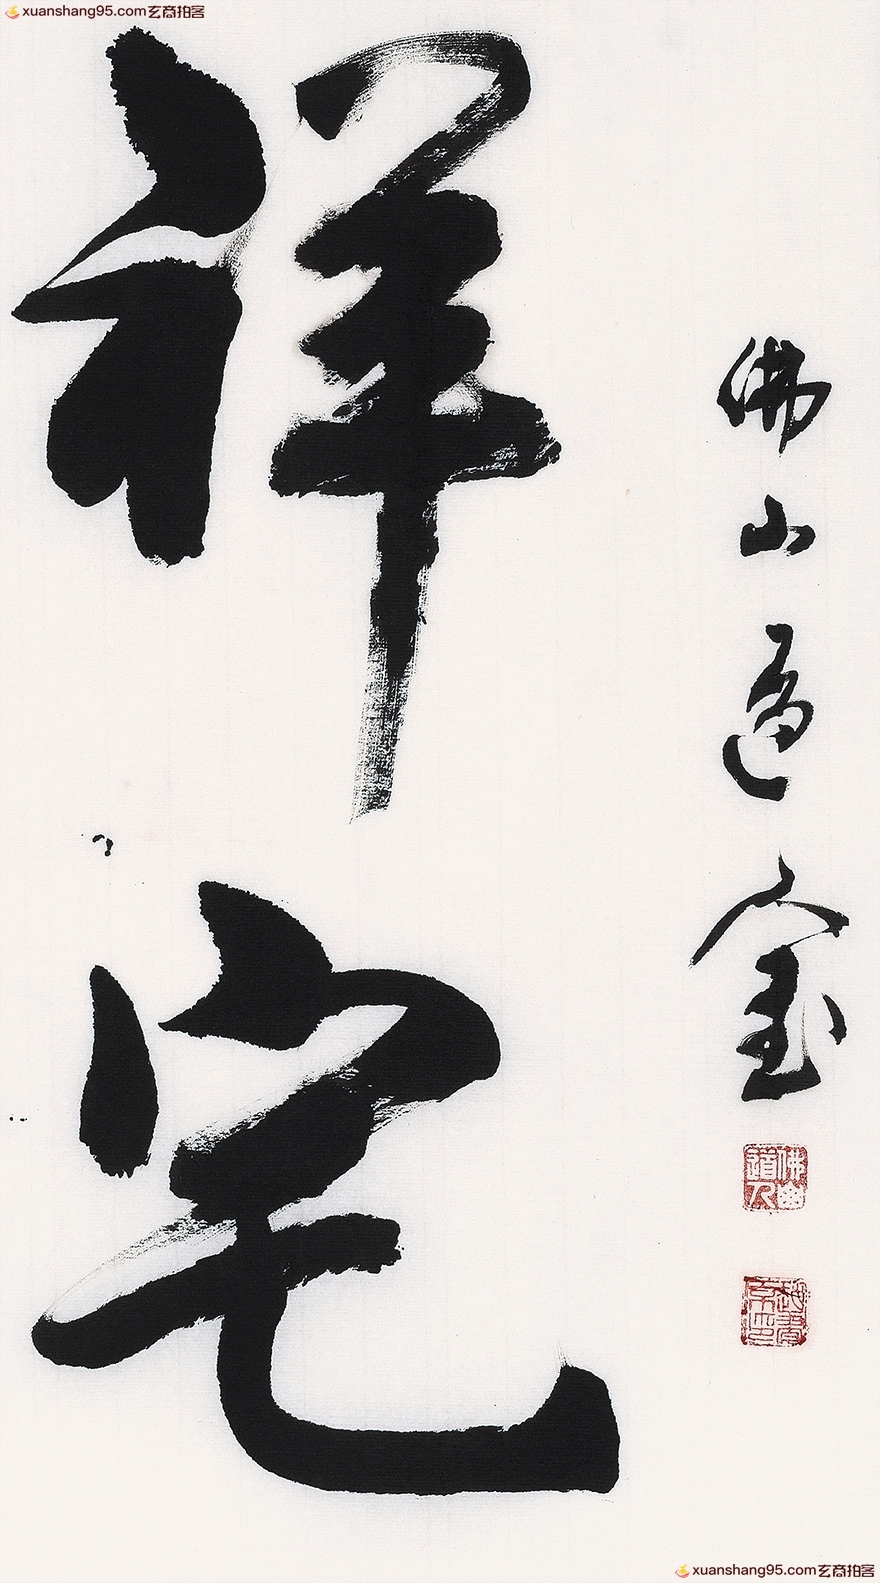 xuanshang95.com玄商拍客
佛山道金
祥
宅
佛山道人
xuanshang95.com玄商拍客